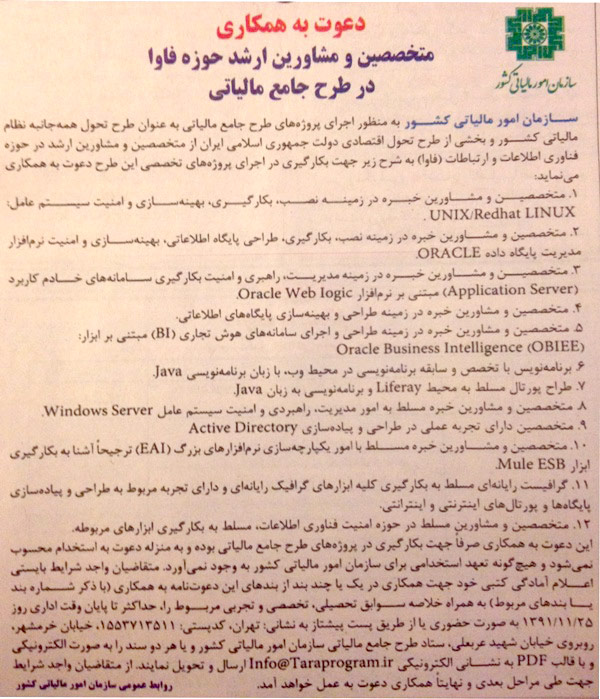 دعوت به همکاری
متخصصین و مشاورین ارشد حوزه فاوا
در طرح جامع مالیاتی
سازمان امور مالیاتی کشور
سازمان امور مالیاتی کشور به منظور اجرای پروژه‌های طرح جامع مالیاتی به عنوان طرح تحول همه‌جانبه نظام
مالیاتی کشور و بخشی از طرح تحول اقتصادی دولت جمهوری اسلامی ایران از متخصصین و مشاورین ارشد در حوزه
فناوری اطلاعات و ارتباطات (فاوا) به شرح زیر جهت بکارگیری در اجرای پروژه‌های تخصصی این طرح دعوت به همکاری
می‌نماید:
۱. متخصصین و مشاورین خبره در زمینه نصب، بکارگیری، بهینه‌سازی و امنیت سیستم عامل:
UNIX/Redhat LINUX.
۲. متخصصین و مشاورین خبره در زمینه نصب، بکارگیری، طراحی پایگاه اطلاعاتی، بهینه‌سازی و امنیت نرم‌افزار
مدیریت پایگاه داده ORACLE.
۳. متخصصین و مشاورین خبره در زمینه مدیریت، راهبری و امنیت بکارگیری سامانه‌های خادم کاربرد
(Application Server) مبتنی بر نرم‌افزار Oracle Web logic.
۴. متخصصین و مشاورین خبره در زمینه طراحی و بهینه‌سازی پایگاه‌های اطلاعاتی.
۵. متخصصین و مشاورین خبره در زمینه طراحی و اجرای سامانه‌های هوش تجاری (BI) مبتنی بر ابزار:
Oracle Business Intelligence (OBIEE)
۶. برنامه‌نویس با تخصص و سابقه برنامه‌نویسی در محیط وب، با زبان برنامه‌نویسی Java.
۷. طراح پورتال مسلط به محیط Liferay و برنامه‌نویسی به زبان Java.
۸. متخصصین و مشاورین خبره مسلط به امور مدیریت، راهبردی و امنیت سیستم عامل Windows Server.
۹. متخصصین دارای تجربه عملی در طراحی و پیاده‌سازی Active Directory
۱۰. متخصصین و مشاورین خبره مسلط با امور یکپارچه‌سازی نرم‌افزارهای بزرگ (EAI) ترجیحاً آشنا به بکارگیری
ابزار Mule ESB.
۱۱. گرافیست رایانه‌ای مسلط به بکارگیری کلیه ابزارهای گرافیک رایانه‌ای و دارای تجربه مربوط به طراحی و پیاده‌سازی
پایگاه‌ها و پورتال‌های اینترنتی و اینترانتی.
۱۲. متخصصین و مشاورین مسلط در حوزه امنیت فناوری اطلاعات، مسلط به بکارگیری ابزارهای مربوطه.
این دعوت به همکاری صرفاً جهت بکارگیری در پروژه‌های طرح جامع مالیاتی بوده و به منزله دعوت به استخدام محسوب
نمی‌شود و هیچ‌گونه تعهد استخدامی برای سازمان امور مالیاتی کشور به وجود نمی‌آورد. متقاضیان واجد شرایط بایستی
اعلام آمادگی کتبی خود جهت همکاری در یک یا چند بند از بندهای این دعوت‌نامه به همکاری (با ذکر شماره بند
یا بندهای مربوط) به همراه خلاصه سوابق تحصیلی، تخصصی و تجربی مربوط را، حداکثر تا پایان وقت اداری روز
۱۳۹۱/۱۱/۲۵ به صورت حضوری یا از طریق پست پیشتاز به نشانی: تهران، کدپستی: ۱۵۵۳۷۱۳۵۱۱، خیابان خرمشهر،
روبروی خیابان شهید عربعلی، ستاد طرح جامع مالیاتی سازمان امور مالیاتی کشور و یا هر دو سند را به صورت الکترونیکی
و با قالب PDF به نشانی الکترونیکی Info@Taraprogram.ir ارسال و تحویل نمایند. از متقاضیان واجد شرایط
جهت طی مراحل بعدی و نهایتاً همکاری دعوت به عمل خواهد آمد.
روابط عمومی سازمان امور مالیاتی کشور